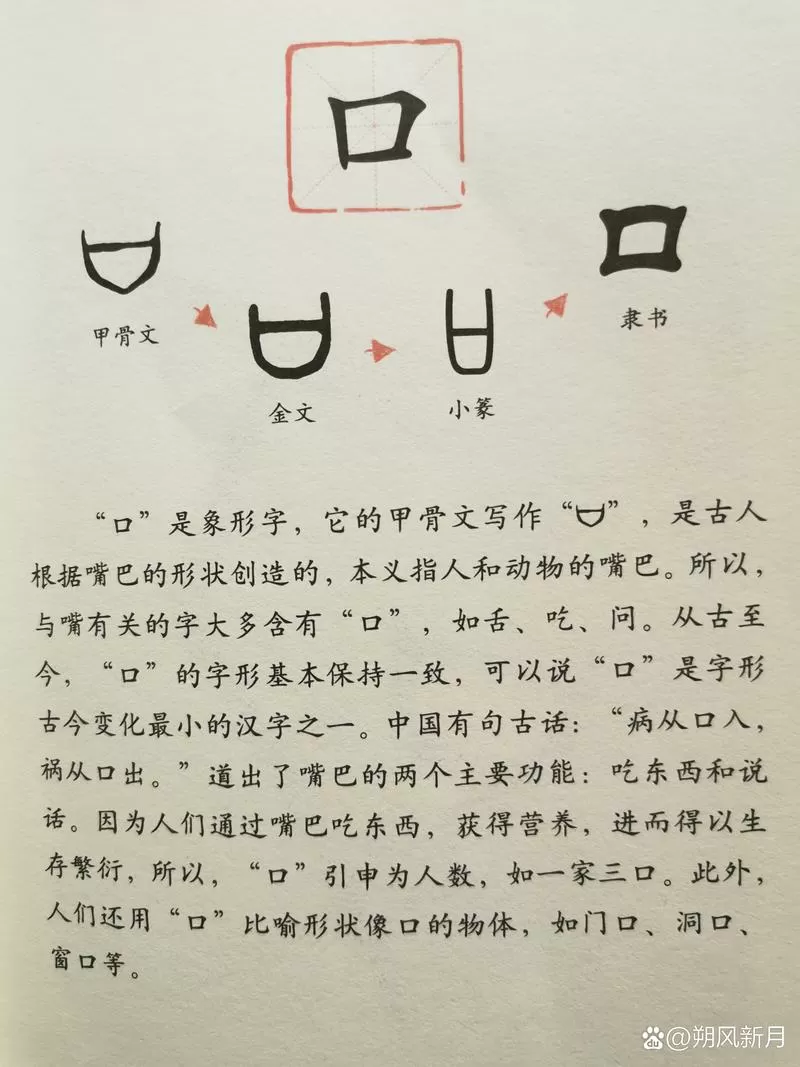 口
甲骨文
金文
小篆
隶书
“口”是象形字，它的甲骨文写作“”，是古人
根据嘴巴的形状创造的，本义指人和动物的嘴巴。所以，
与嘴有关的字大多含有“口”，如舌、吃、问。从古至
今，“口”的字形基本保持一致，可以说“口”是字形
古今变化最小的汉字之一。中国有句古话：“病从口入，
祸从口出。”道出了嘴巴的两个主要功能：吃东西和说
话。因为人们通过嘴巴吃东西，获得营养，进而得以生
存繁衍，所以，“口”引申为人数，如一家三口。此外，
人们还用“口”比喻形状像口的物体，如门口、洞口、
窗口等。
Bai du @朔风新月